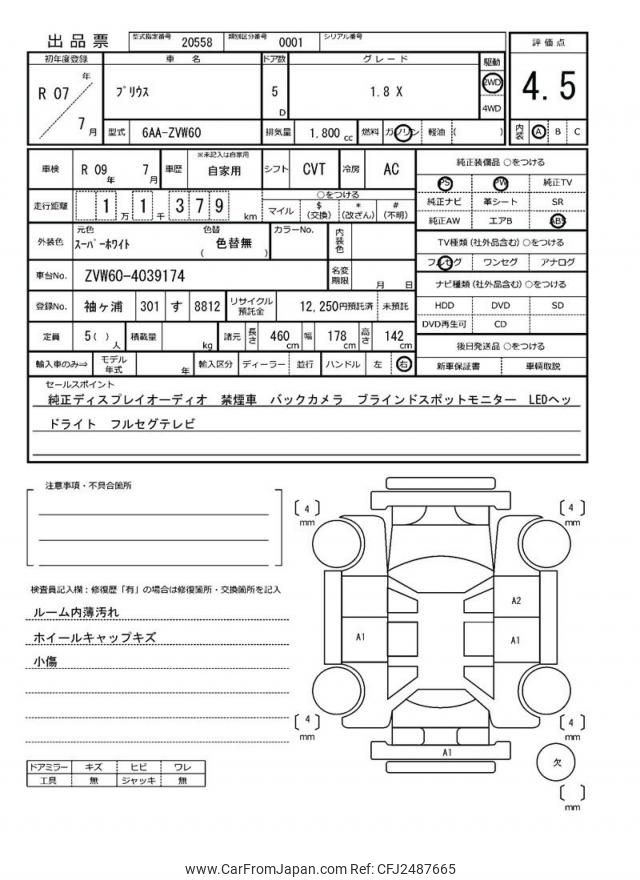 出品票
型式指定番号 20558 類別区分番号 0001 シリアル番号
初年度登録 車 名 ドア数 グレード 駆動 評価点
R 07 年 7 月 プリウス 5 D 1.8 X 2WD 4WD 4.5
型式 6AA-ZVW60 排気量 1.800 cc 燃料 ガソリン 軽油 ( ) 内装 A B C
車検 R 09 年 7 月 車歴 ※未記入は自家用 自家用 シフト CVT 冷房 AC
純正装備品 ○をつける
PS PW 純正TV
純正ナビ 革シート SR
純正AW エアB ABS
走行距離 1 万 1 千 3 7 9 km
○をつける
マイル $ (交換) * (改ざん) # (不明)
外装色 元色 スーパーホワイト 色替 ( 色替無 ) カラーNo. 内装色
TV種類 (社外品含む) ○をつける
フルセグ ワンセグ アナログ
車台No. ZVW60-4039174 名変期限 月 日
ナビ種類 (社外品含む) ○をつける
HDD DVD SD
DVD再生可 CD
登録No. 袖ヶ浦 301 す 8812 リサイクル預託金 12,250円預託済 未預託
定員 5( ) 人 積載量 kg 諸元 長さ 460 cm 幅 178 cm 高さ 142 cm
後日発送品 ○をつける
新車保証書 車輌取説
輸入車のみ⇒ モデル年式 年 輸入区分 ディーラー 並行 ハンドル 左 右
セールスポイント
純正ディスプレイオーディオ 禁煙車 バックカメラ ブラインドスポットモニター LEDヘッ
ドライト フルセグテレビ
注意事項・不具合箇所
検査員記入欄：修復歴「有」の場合は修復箇所・交換箇所を記入
ルーム内薄汚れ
ホイールキャップキズ
小傷
ドアミラー キズ ヒビ ワレ
工具 無 ジャッキ 無
4 mm
4 mm
A2
A1
A1
4 mm
4 mm
A1
欠
mm
www.CarFromJapan.com Ref: CFJ2487665